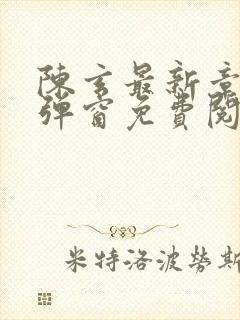 陳玄最新章
彈窗免費閱
米特洛波勞斯